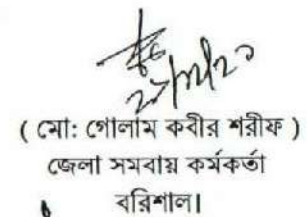 ( মো: গোলাম কবীর শরীফ )
জেলা সমবায় কর্মকর্তা
বরিশাল।